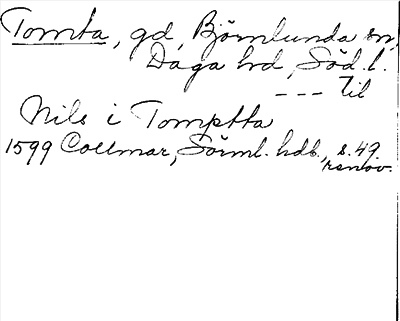 Tomta, gd, Björnlunda sn,
Daga hd, Söd. l.
--- til
Nils i Tomptta
1599 Collmar, Sörml. hdb., s. 49.
renov.